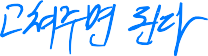 고쳐주면 된다